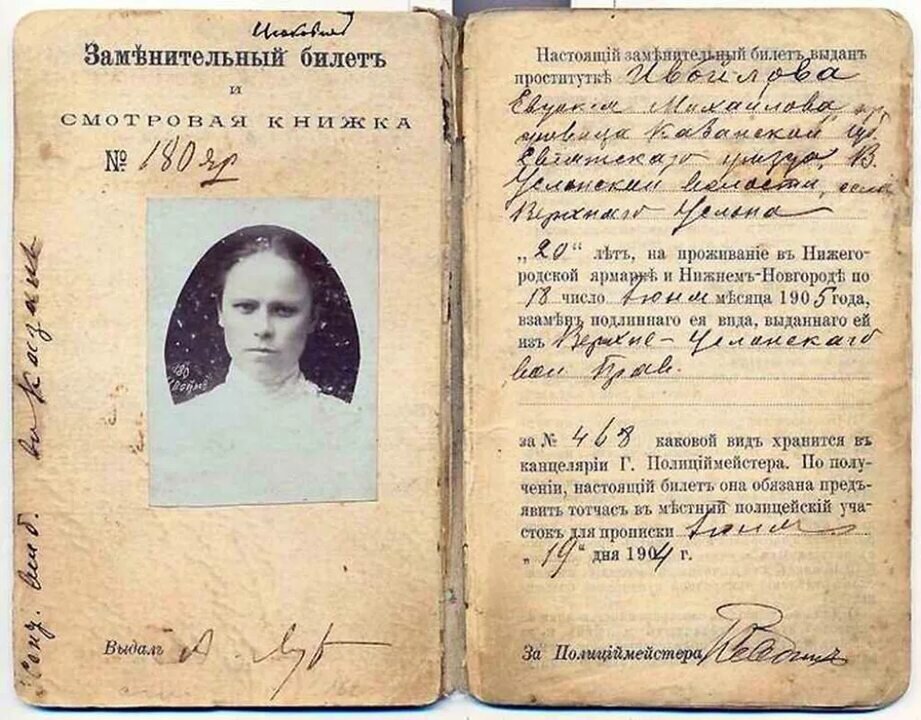 Замѣнительный билетъ
и
СМОТРОВАЯ КНИЖКА
№ 180 яр
Выдалъ
во Казань
Настоящій замѣнительный билетъ выданъ
проституткѣ Ивойлова
Евдокія Михайлова,
Казанской губ.
уѣзда, В.
Услонской волости, села
Верхняго Услона
„20“ лѣтъ, на проживаніе въ Нижего-
родской ярмаркѣ и Нижнемъ-Новгородѣ по
18 число Іюня мѣсяца 1905 года,
взамѣнъ подлиннаго ея вида, выданнаго ей
изъ Верхне-Услонскаго
вол Прав.
за № 468 каковой видъ хранится въ
канцеляріи Г. Полиціймейстера. По полу-
ченіи, настоящій билетъ она обязана предъ-
явить тотчасъ въ мѣстный полицейскій уча-
стокъ для прописки Іюня
„19“ дня 1904 г.
За Полиціймейстера